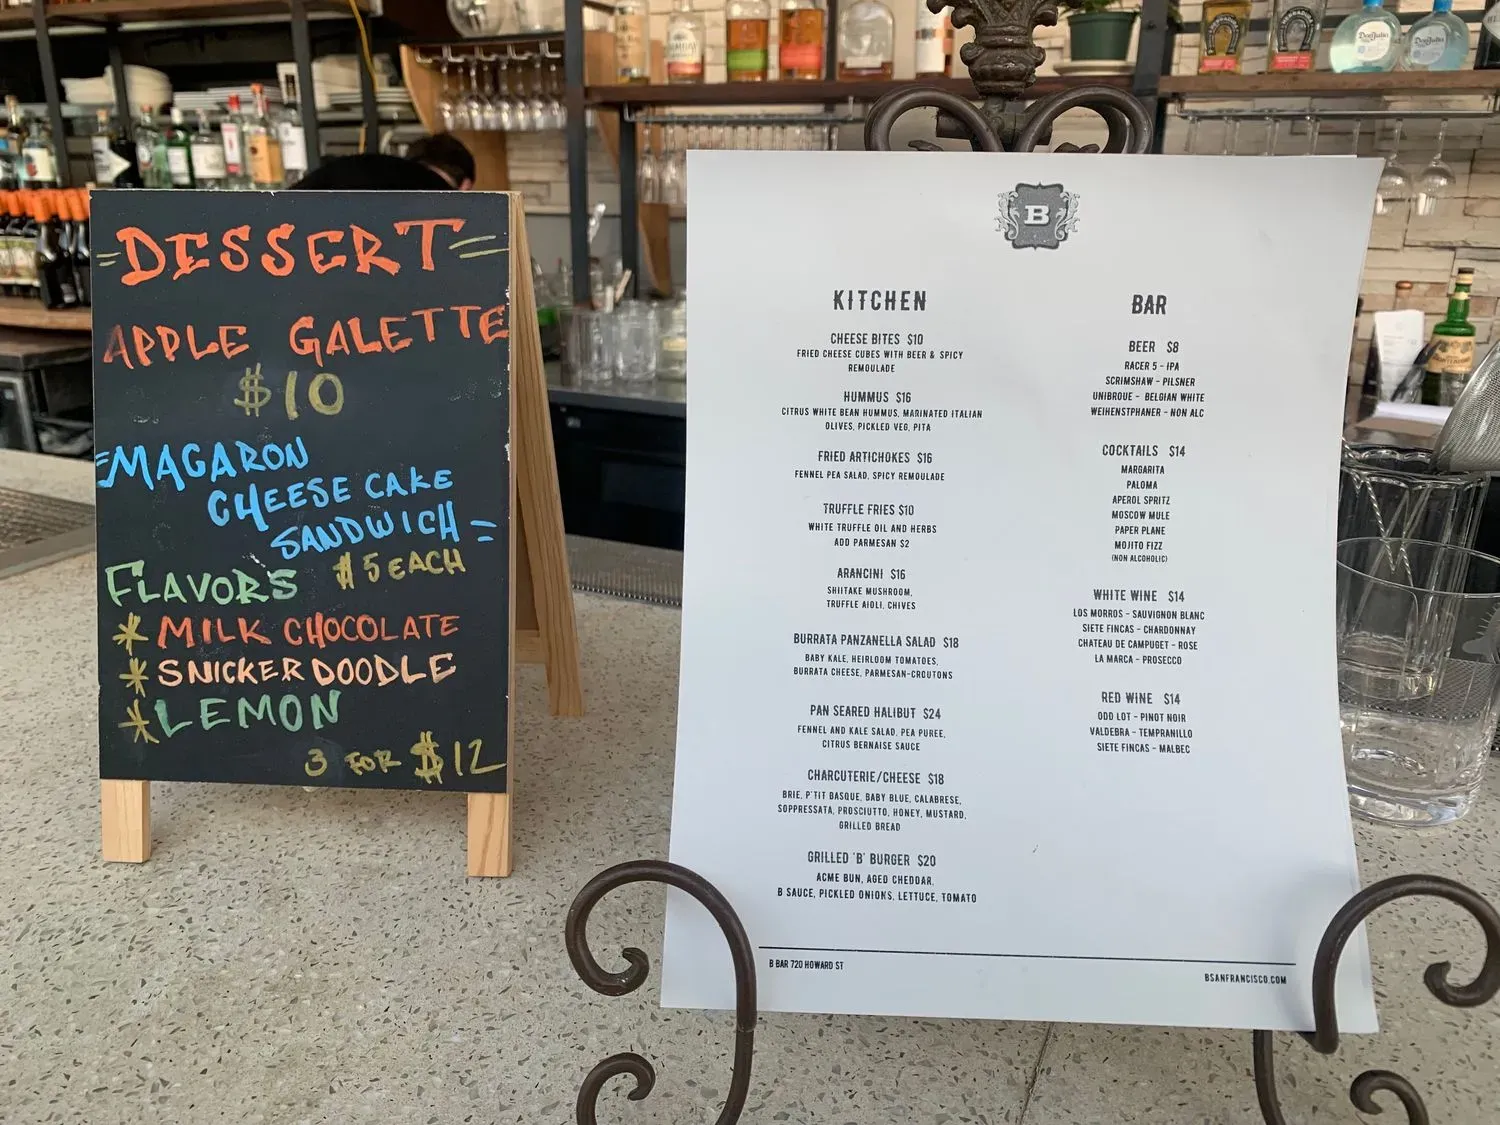 DESSERT
APPLE GALETTE
$10
MACARON
CHEESE CAKE
SANDWICH
$5 EACH
FLAVORS
* MILK CHOCOLATE
* SNICKERDOODLE
* LEMON
3 FOR $12
B
KITCHEN
CHEESE BITES $10
FRIED CHEESE CUBES WITH BEER & SPICY
REMOULADE
HUMMUS $16
CITRUS WHITE BEAN HUMMUS, MARINATED ITALIAN
OLIVES, PICKLED VEG, PITA
FRIED ARTICHOKES $16
FENNEL PEA SALAD, SPICY REMOULADE
TRUFFLE FRIES $10
WHITE TRUFFLE OIL AND HERBS
ADD PARMESAN $2
ARANCINI $16
SHIITAKE MUSHROOM,
TRUFFLE AIOLI, CHIVES
BURRATA PANZANELLA SALAD $18
BABY KALE, HEIRLOOM TOMATOES,
BURRATA CHEESE, PARMESAN-CROUTONS
PAN SEARED HALIBUT $24
FENNEL AND KALE SALAD, PEA PUREE,
CITRUS BERNAISE SAUCE
CHARCUTERIE/CHEESE $18
BRIE, P'TIT BASQUE, BABY BLUE, CALABRESE,
SOPPRESSATA, PROSCIUTTO, HONEY, MUSTARD,
GRILLED BREAD
GRILLED 'B' BURGER $20
ACME BUN, AGED CHEDDAR,
B SAUCE, PICKLED ONIONS, LETTUCE, TOMATO
BAR
BEER $8
RACER 5 - IPA
SCRIMSHAW - PILSNER
UNIBROUE - BELGIAN WHITE
WEIHENSTPHANER - NON ALC
COCKTAILS $14
MARGARITA
PALOMA
APEROL SPRITZ
MOSCOW MULE
PAPER PLANE
MOJITO FIZZ
(NON ALCOHOLIC)
WHITE WINE $14
LOS MORROS - SAUVIGNON BLANC
SIETE FINCAS - CHARDONNAY
CHATEAU DE CAMPUGET - ROSE
LA MARCA - PROSECCO
RED WINE $14
ODD LOT - PINOT NOIR
VALDEBRA - TEMPRANILLO
SIETE FINCAS - MALBEC
B BAR 720 HOWARD ST
BSANFRANCISCO.COM